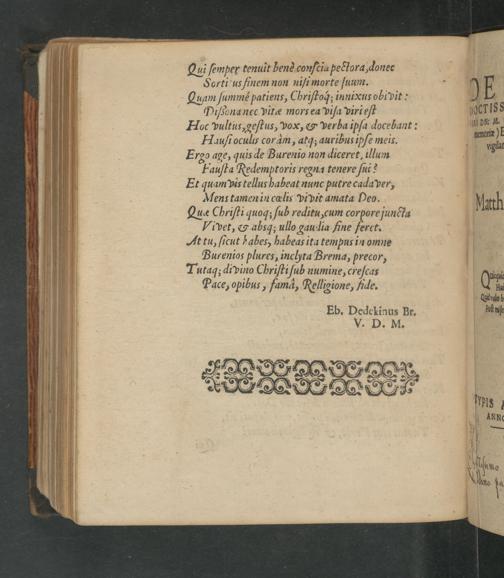 Qui semper tenuit benè conscia pectora, donec
Sortitus finem non nisi morte suum.
Quam summé patiens, Christoq; innixus obivit:
Dissona nec vitæ mors ea visa viri est
Hoc vultus, gestus, vox, & verba ipsa docebant:
Hausi oculis coràm, atq; auribus ipse meis.
Ergo age, quis de Burenio non diceret, illum
Fausta Redemptoris regna tenere sui?
Et quamvis tellus habeat nunc putre cadaver,
Mens tamen in cœlis vivit amata Deo.
Quæ Christi quoq; sub reditu, cum corpore juncta
Vivet, & absq; ullo gaudia fine feret.
At tu, sicut habes, habeas ita tempus in omne
Burenios plures, inclyta Brema, precor,
Tutaq; divino Christi sub numine, crescas
Pace, opibus, famâ, Relligione, fide.
Eb. Dedekinus Br.
V. D. M.
DE
DOCTISS
DN: M.
memoriæ) E
vigilan
Matth
TYPIS A
ANNO